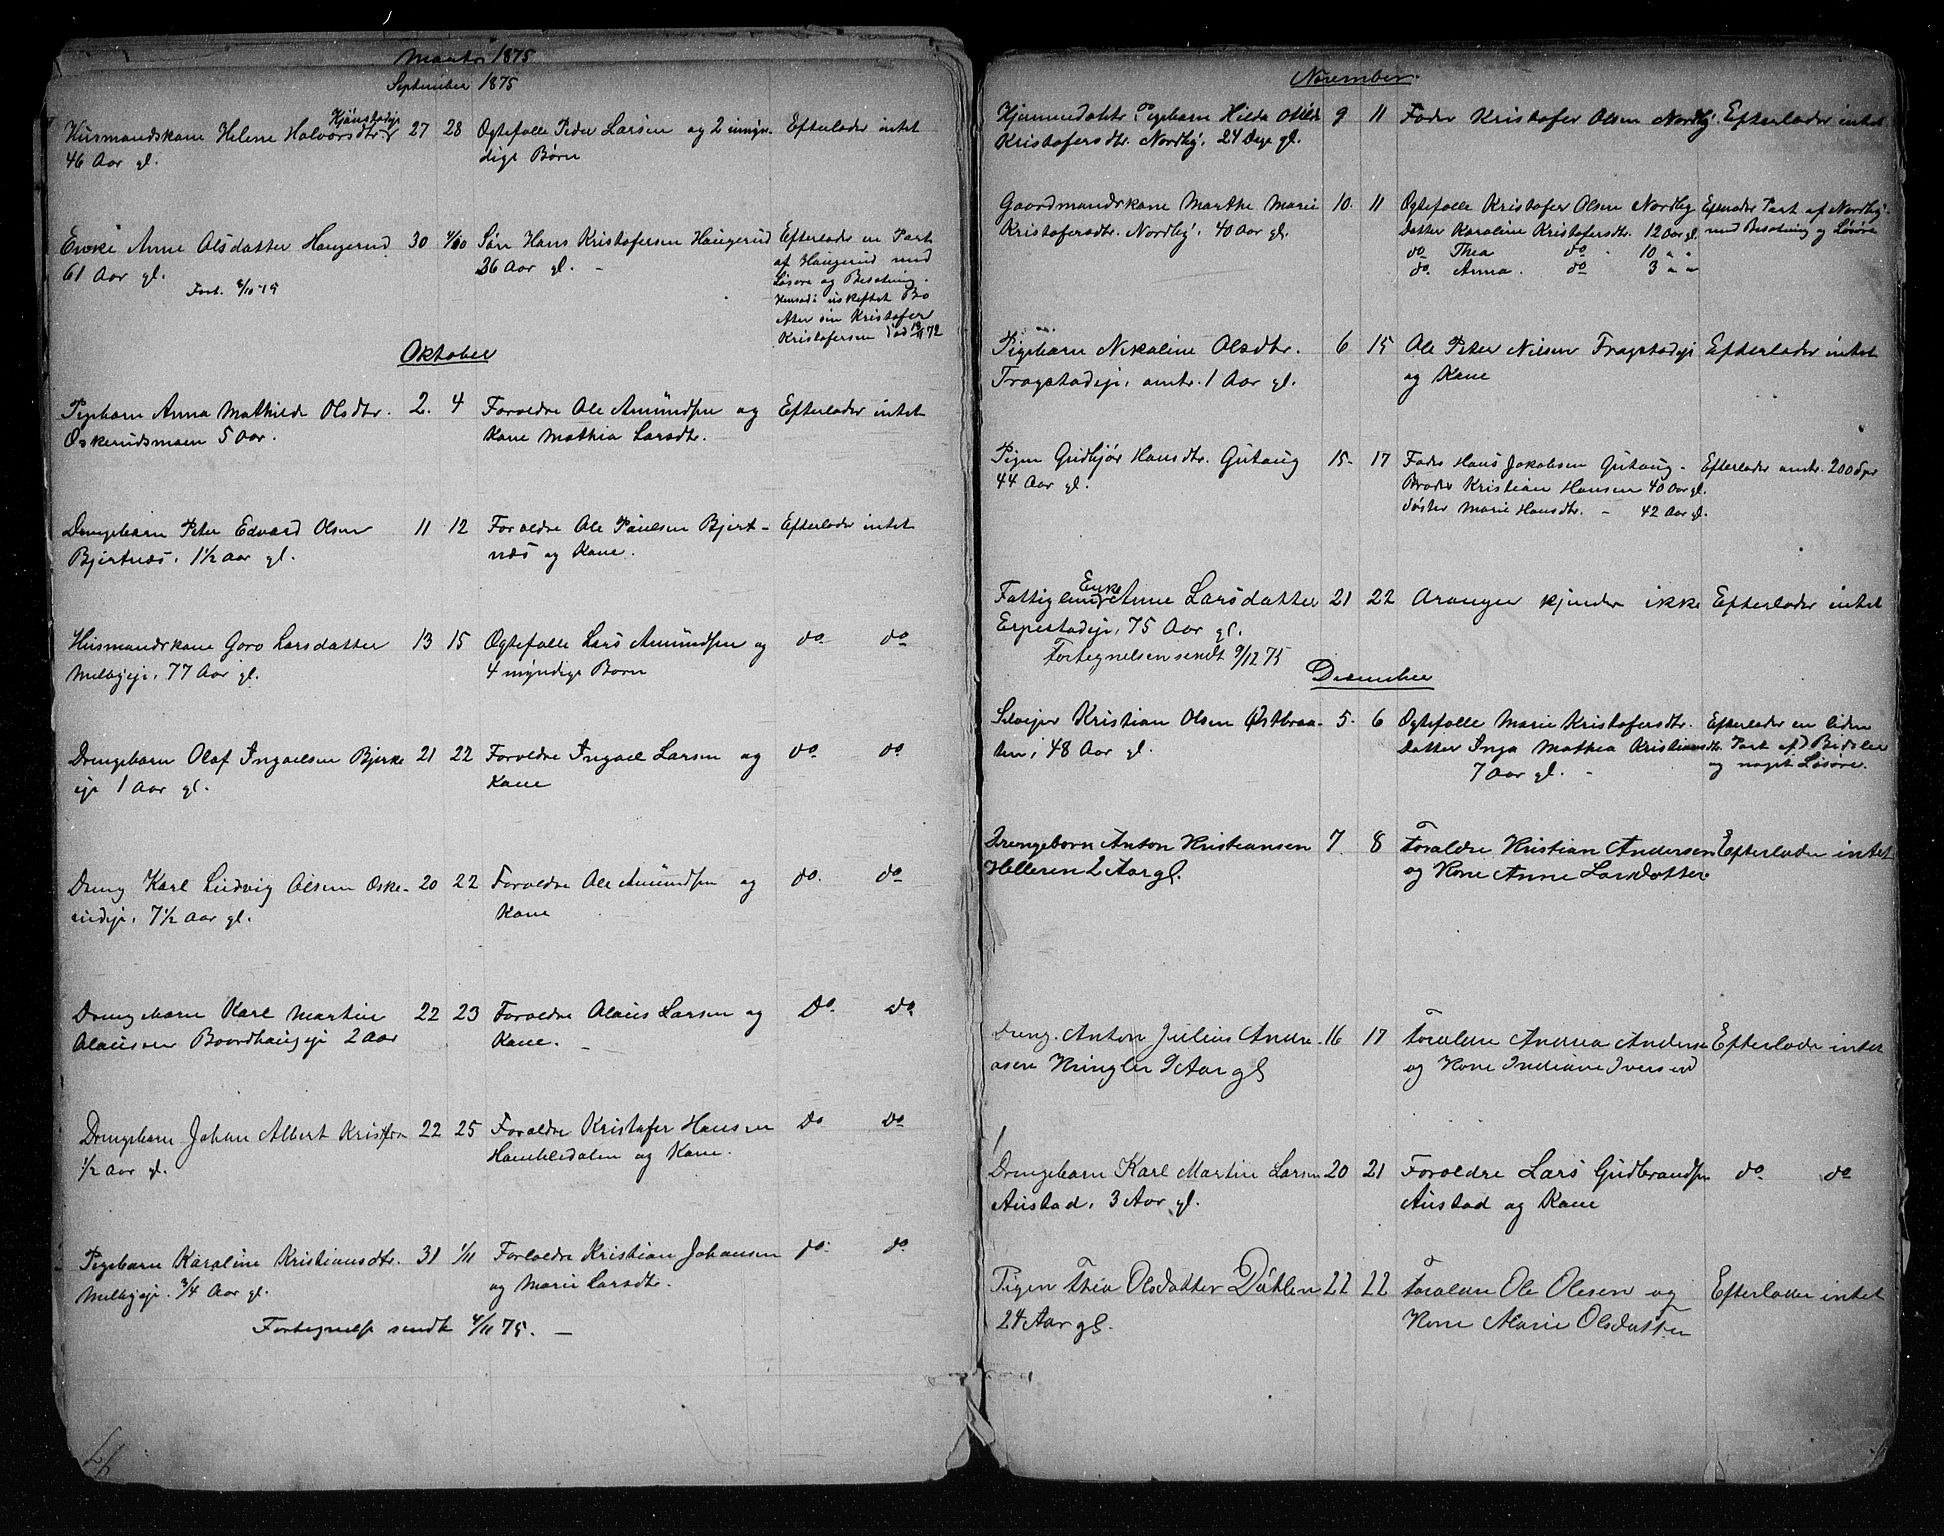 1875
September 1875
Kjönstadeje
Husmandskone Helene Halvorsdtr 27 28 Ogtefolle Peder Larsen og 2 umyn- Efterlader intet
46 Aar gl. dige Børn
Enke Anne Olsdatter Haugerud 30 1/10 Søn Hans Kristofersen Haugerud Efterlader en Part
61 Aar gl. 36 Aar gl. – af Haugerud med
Fort. 4/10 75 Løsøre og Besætning.
Hensad i uskiftet Bo
efter sin Kristofer
Kristofersen
Oktober
Pigebarn Anna Mathilde Olsdtr. 2. 4 Foroldre Ole Amundsen og Efterlader intet
Oskerudsmoen 5 Aar. Kone Mathia Larsdtr.
Drengebarn Peter Edvard Olsen 11 12 Foroldre Ole Paulsen Bjert- Efterlader intet
Bjertnæs, 1½ Aar gl. næs og Kone.
Husmandskone Goro Larsdatter 13 15 Ogtefolle Lars Amundsen og do do
Melbyeje, 77 Aar gl. 4 myndige Børn
Drengebarn Olaf Ingvelsen Bjerke 21 22 Foroldre Ingvel Larsen og do do
eje 1 Aar gl. Kone
Dreng Karl Ludvig Olsen Oske- 20 22 Foroldre Ole Amundsen og do. do
rudeje, 7½ Aar gl. Kone
Drengebarn Karl Martin 22 23 Foroldre Olaus Larsen og Do. do.
Olausen Boordhaugeje 2 Aar Kone. –
Drengebarn Johan Albert Kristofersen 22 25 Foroldre Kristofer Hansen Do Do
½ Aar gl. Hombledalen og Kone.
Pigebarn Karoline Kristiansdtr. 31 1/11 Foroldre Kristian Johansen do. do.
Melbyeje. 3/4 Aar gl. og Marie Larsdtr.
Fortegnelse sendt 4/11 75. –
November.
Hjemmedøbt Pigebarn Hilda Otilde 9 11 Fader Kristofer Olsen Nordby. Efterlader intet
Kristofersdtr. Nordby. 24 Dage gl.
Gaardmandskone Marthe Marie 10. 11 Ogtefolle Kristofer Olsen Nordby Efterlader Part af Nordby
Kristofersdtr. Nordby. 40 Aar gl. Datter Karoline Kristofersdtr. 12 Aar gl. med Besætning og Løsøre
do Thea do 10 " "
do. Anna. do 3 " "
Pigebarn Nikoline Olsdtr. 6 15 Ole Peter Nilsen Frogstadeje Efterlader intet
Frogstadeje, omtr. 1 Aar gl. og Kone
Pigen Gudbjør Hansdtr. Gutaug 15. 17 Fader Hans Jakobsen Gutaug. Efterlader omtr. 200 Spd
44 Aar gl. Broder Kristian Hansen 40 Aar gl.
Søster Marie Hansdtr. – 42 Aar gl.
Enke
Fattiglem Anne Larsdatter 21 22 Arvinger kjendes ikke Efterlader intet
Erpestadeje, 75 Aar gl.
Fortegnelsen sendt 9/12 75
December
Selvejer Kristian Olsen Østbraa- 5. 6 Ogtefolle Marie Kristofersdtr. Efterlader en liden
ten, 48 Aar gl. Datter Inga Mathea Kristiansdtr. Part af Bidslet
7 Aar gl. – og noget Løsøre.
Drengebarn Anton Kristiansen 7. 8 Foraldre Kristian Andersen Efterlader intet
Helleren 2 Aar gl. og Kone Anne Larsdatter
Dreng. Anton Julius Andre- 16 17 Foraldre Andrea Anderse Efterlader intet
asen Kringler 9 Aar gl og Kone Indiane Iversen
Drengebarn Karl Martin Larsen 20 21 Foroldre Lars Gudbrandsen do. do
Austad, 3 Aar gl. Austad og Kone
Pigen Thea Olsdatter Dahlen 22 22 Foraldre Ole Olesen og Efterlader intet
24 Aar gl. Kone Marie Olsdatter